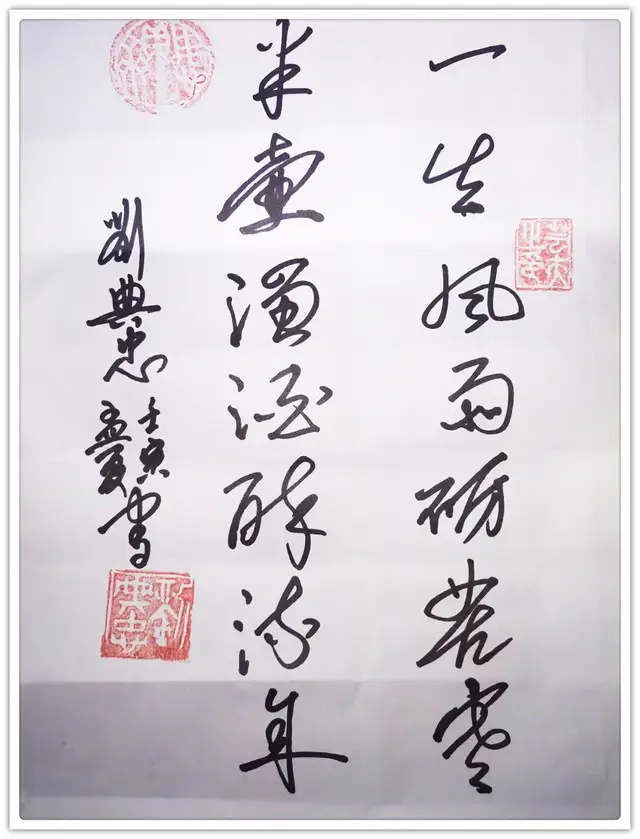 一生风雨砺苦寒
半壶濁酒醉流年
劉典忠
壬寅
孟夏书